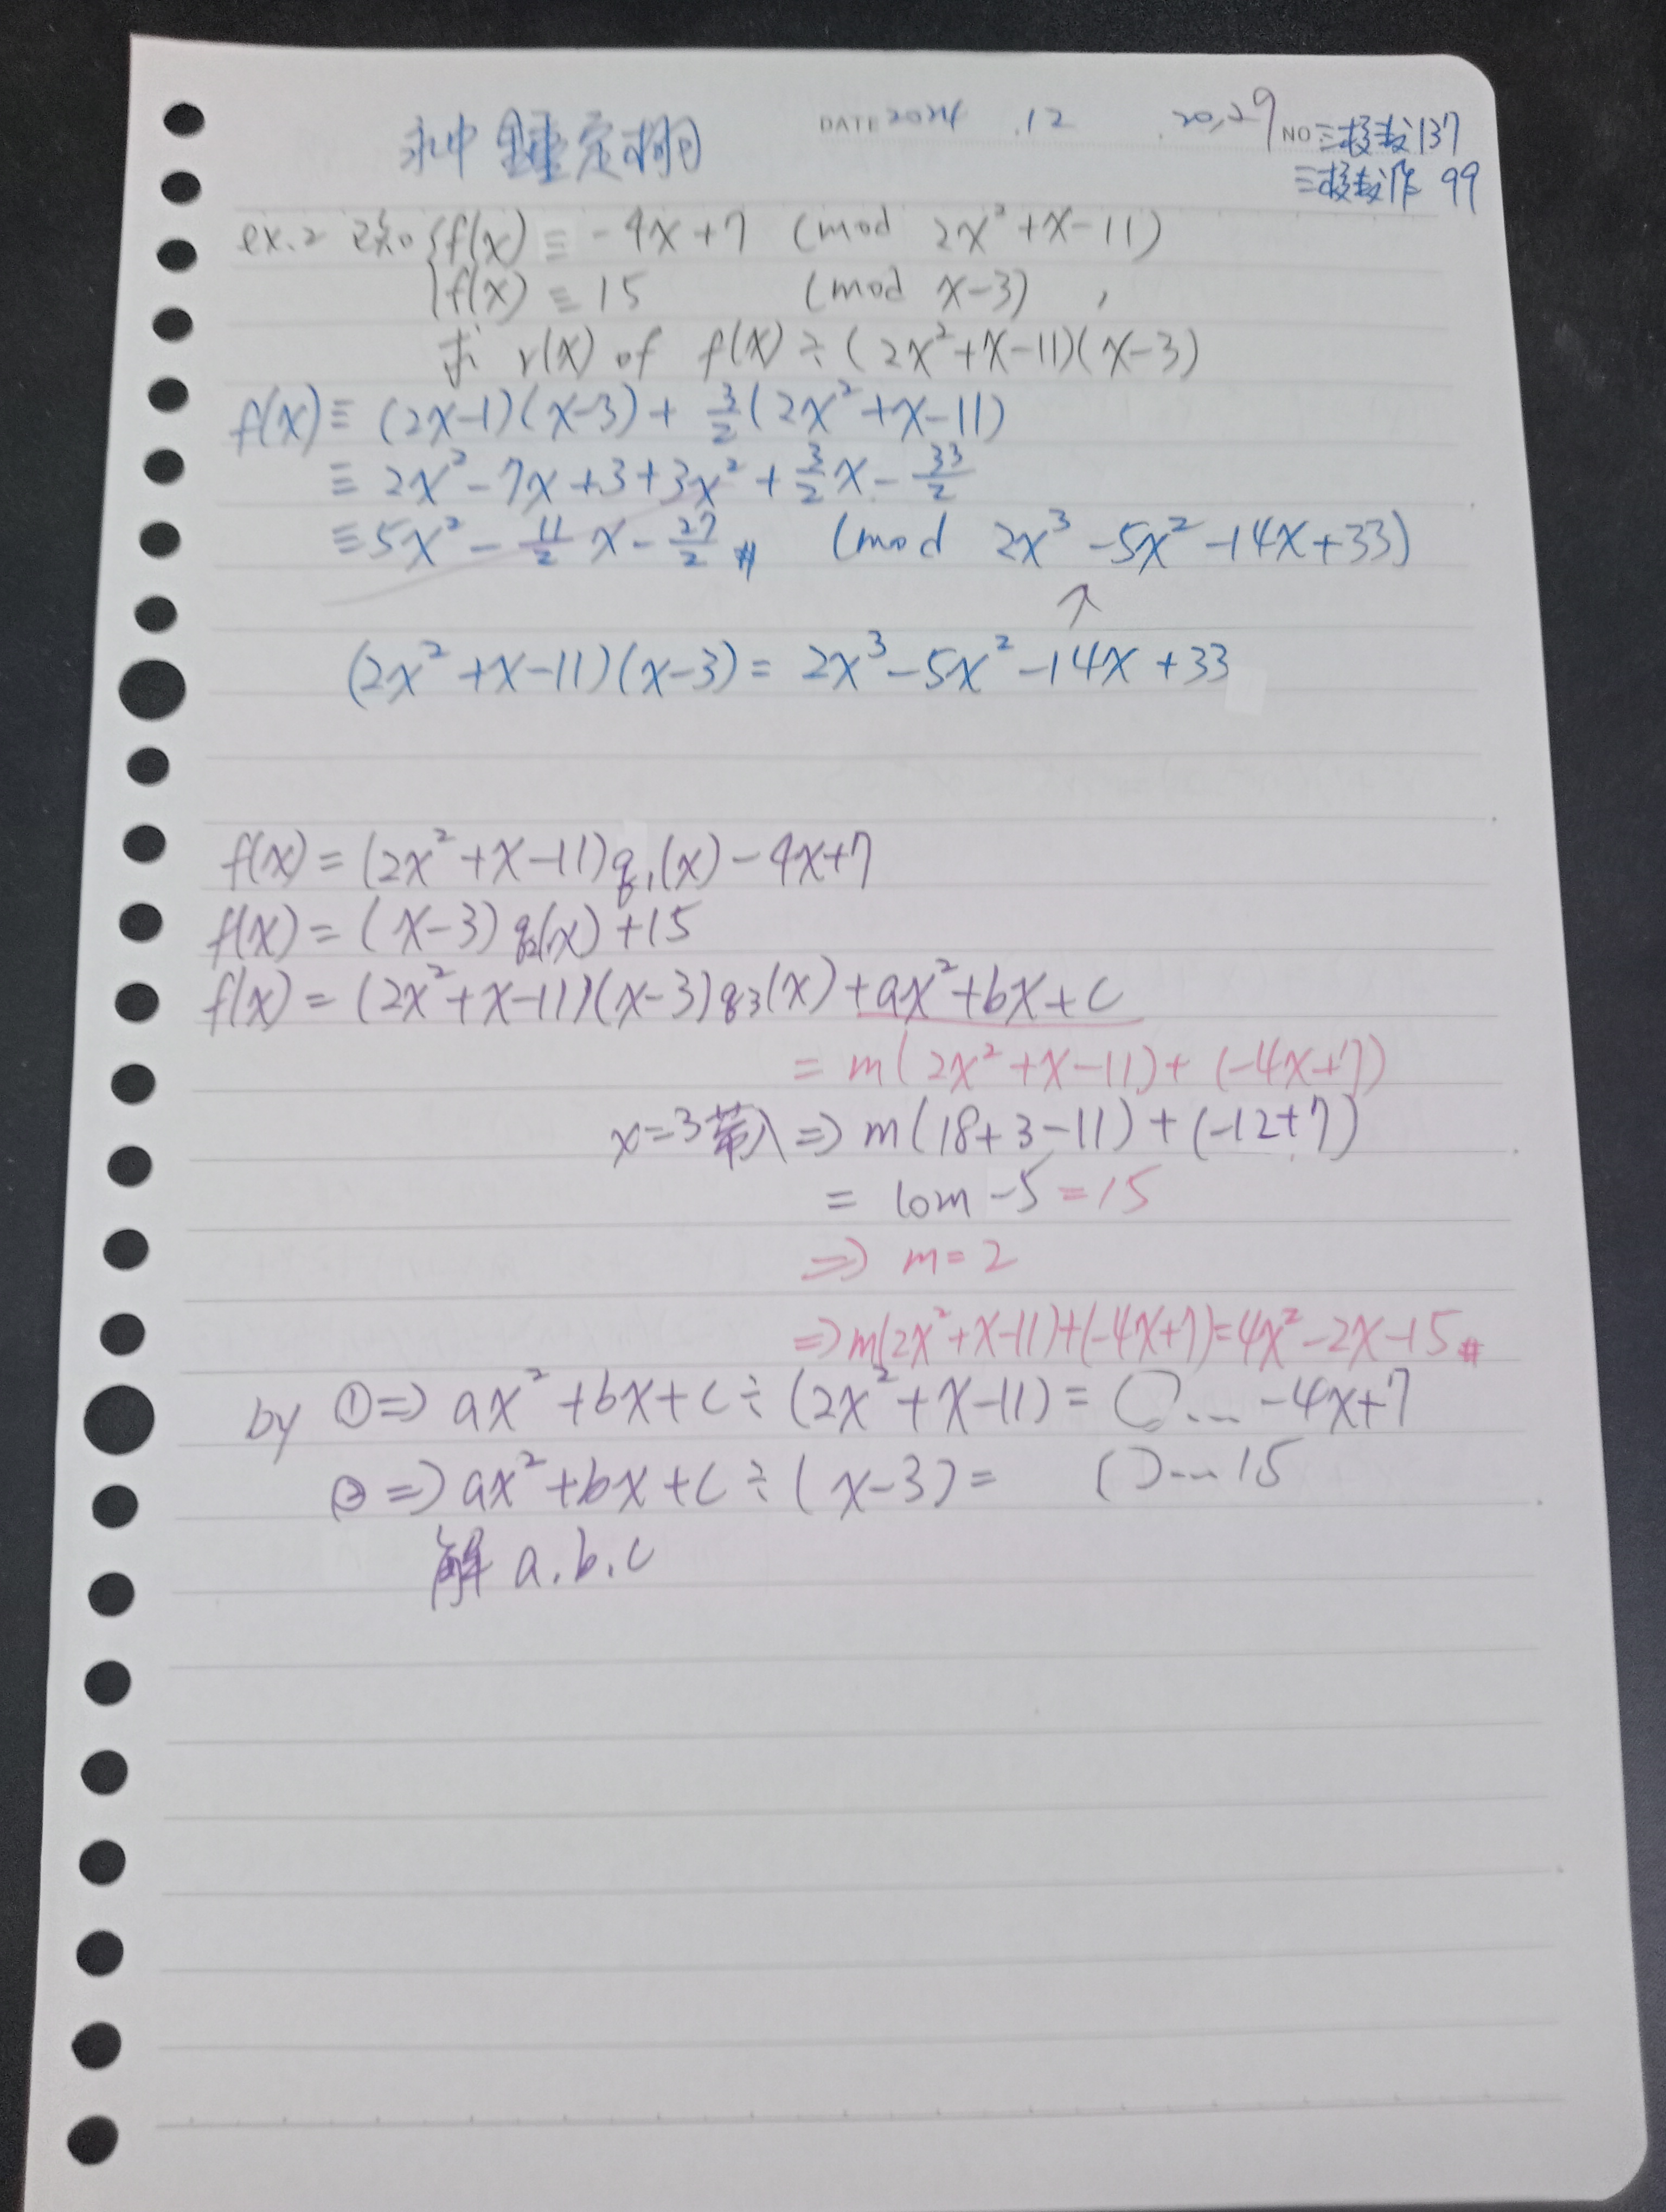 DATE 2024 .12 .20,29 NO 三技抜137
三技抜作 99
ex.2 已知 { f(x) ≡ -4x+7 (mod 2x²+x-11)
f(x) ≡ 15 (mod x-3) ,
求 r(x) of f(x) ÷ (2x²+x-11)(x-3)
f(x) ≡ (2x-1)(x-3) + 3/2 (2x²+x-11)
≡ 2x²-7x+3+3x²+3/2x-33/2
≡ 5x²-11/2x-27/2 # (mod 2x³-5x²-14x+33)
↑
(2x²+x-11)(x-3) = 2x³-5x²-14x+33
f(x) = (2x²+x-11)q₁(x)-4x+7
f(x) = (x-3)q₂(x)+15
f(x) = (2x²+x-11)(x-3)q₃(x)+ax²+bx+c
= m(2x²+x-11)+(-4x+7)
x=3帶入 ⇒ m(18+3-11)+(-12+7)
= 10m-5=15
⇒ m=2
⇒ m(2x²+x-11)+(-4x+7)=4x²-2x-15 #
by ①⇒ ax²+bx+c÷(2x²+x-11)= ( )… -4x+7
②⇒ ax²+bx+c÷(x-3)= ( )…15
解 a.b.c